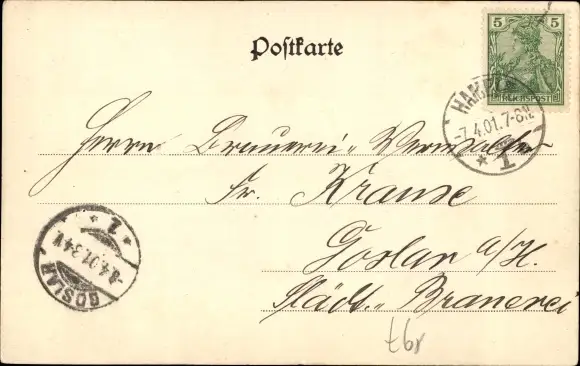 Postkarte
5 5
REICHSPOST
-7.4.01.7-8N.
* 1 *
Herrn Brauerei-Verwalter
Fr. Krause
Goslar a/H.
Städt. Brauerei
* 1 *
-8.4.01.3-4V.
GOSLAR